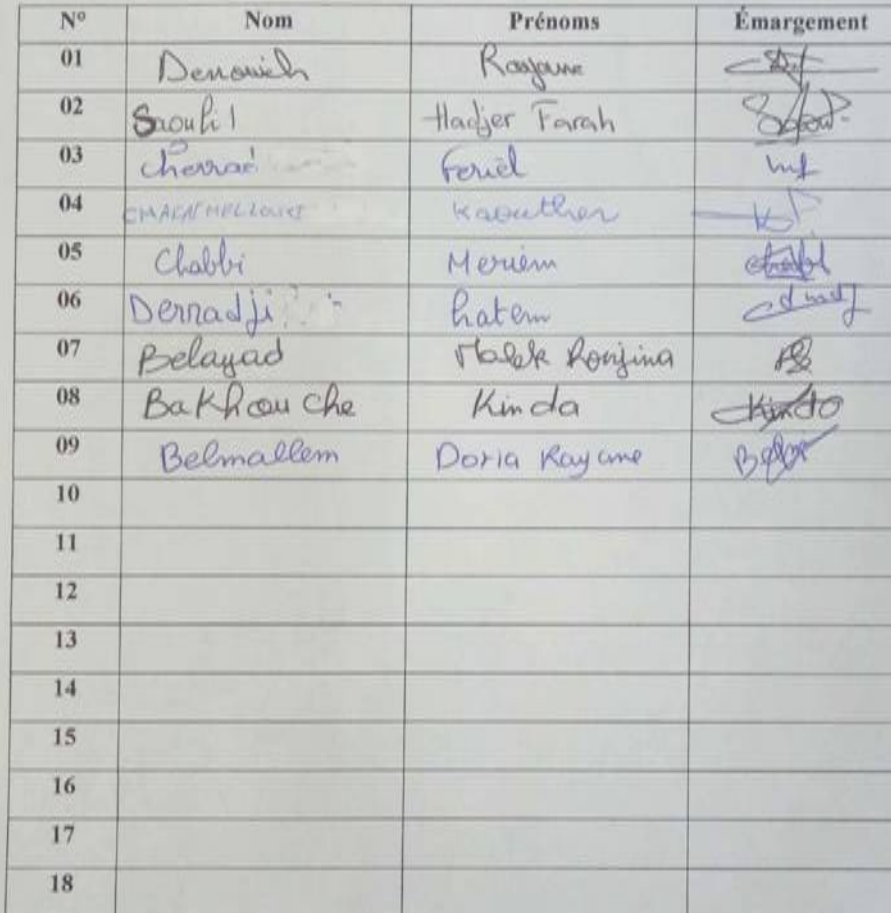 N° Nom Prénoms Émargement
01 Denowich Rayane
02 Saouli Hadjer Farah
03 cherrad Feriel
04 Kaouther
05 Chabbi Meriem
06 Dernadji hatem
07 Belayad Malek Ronjina
08 BaKhouche Kinda Kinda
09 Belmallem Doria Rayane
10
11
12
13
14
15
16
17
18